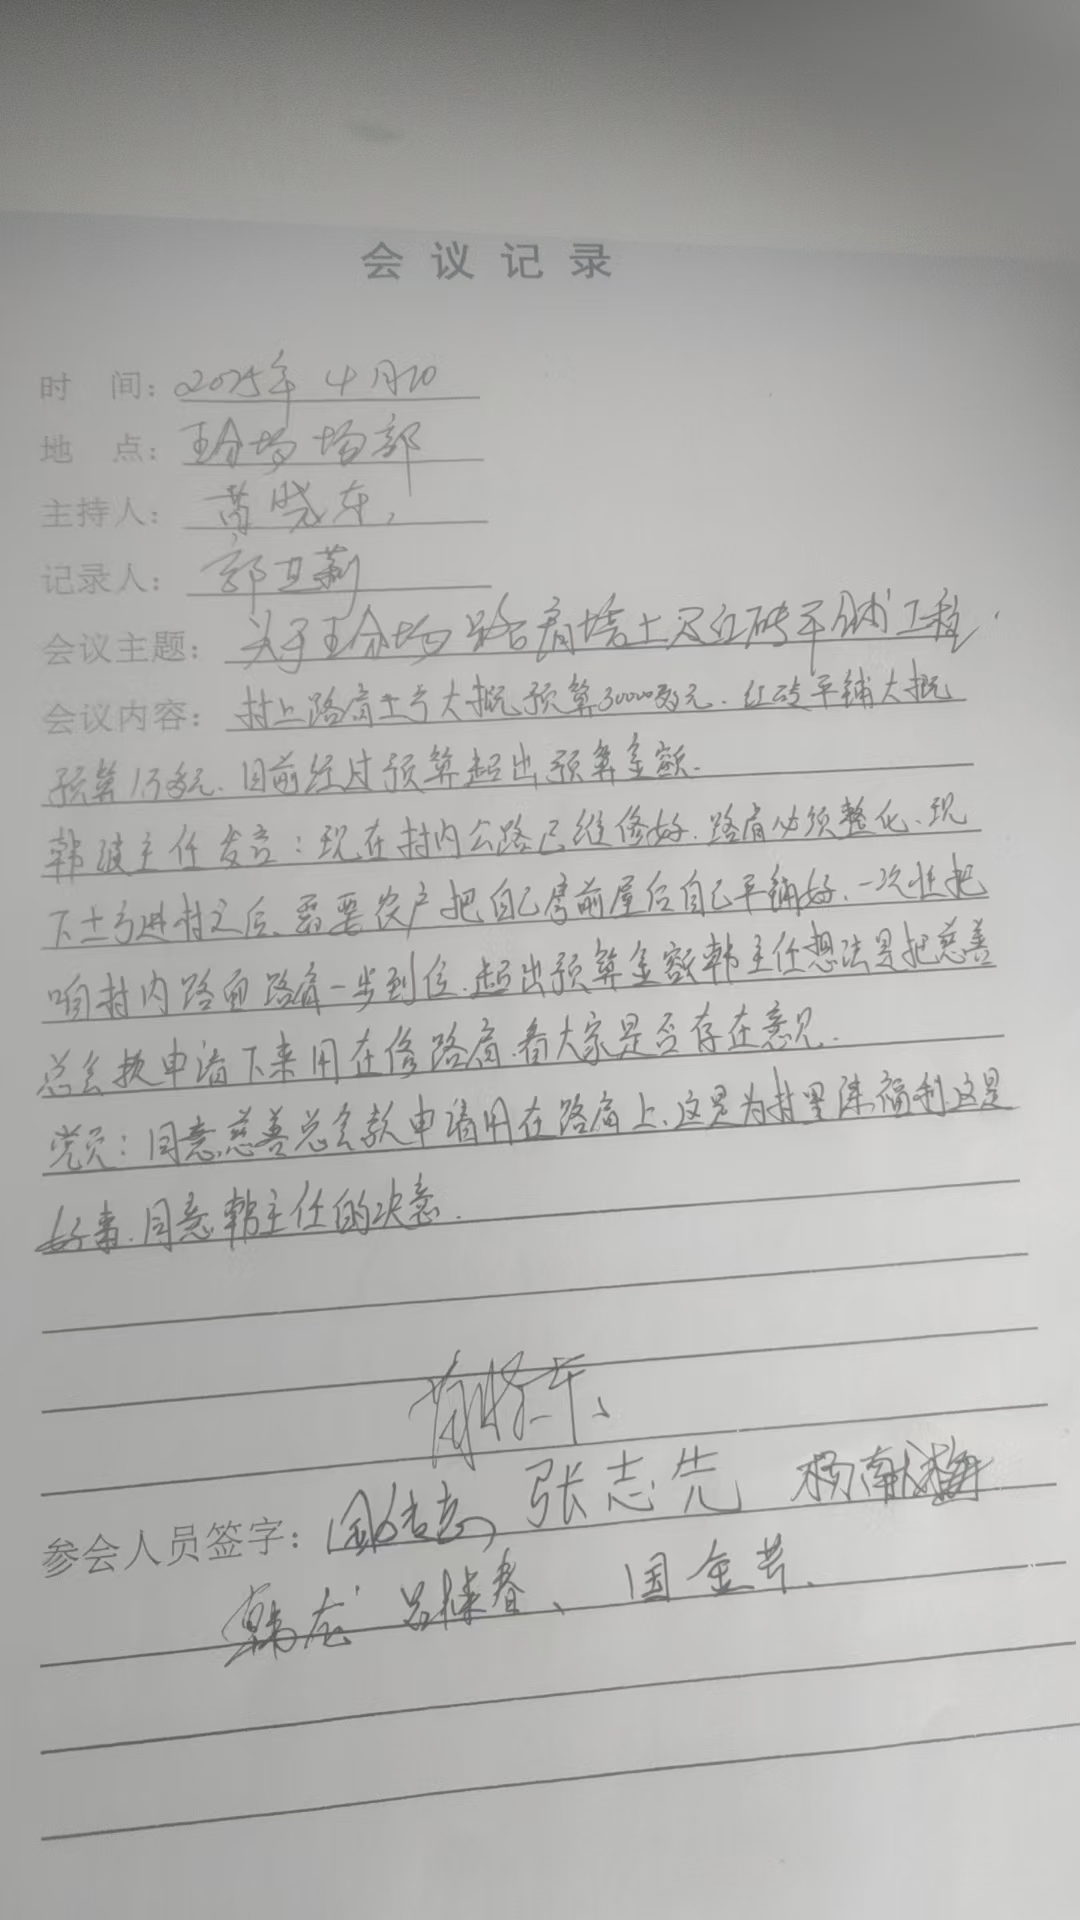 会议记录
时 间：2025年4月10
地 点：王分场场部
主持人：黄晓东，
记录人：郭卫莉
会议主题：关于王分场路肩垫土及红砖平铺工程.
会议内容：村上路肩土方大概预算30000多元、红砖平铺大概
预算1万多元、目前经过预算超出预算金额.
韩波主任发言：现在村内公路已维修好、路肩必须整化、现
下土方进村之后、需要农户把自己房前屋后自己平铺好、一次性把
咱村内路面路肩一步到位、超出预算金额韩主任想法是把慈善
总会款申请下来用在修路肩、看大家是否存在意见.
党员：同意慈善总会款申请用在路肩上、这是为村里谋福利、这是
好事、同意韩主任的决意.
参会人员签字： 张志先 杨献梅
国金芳、